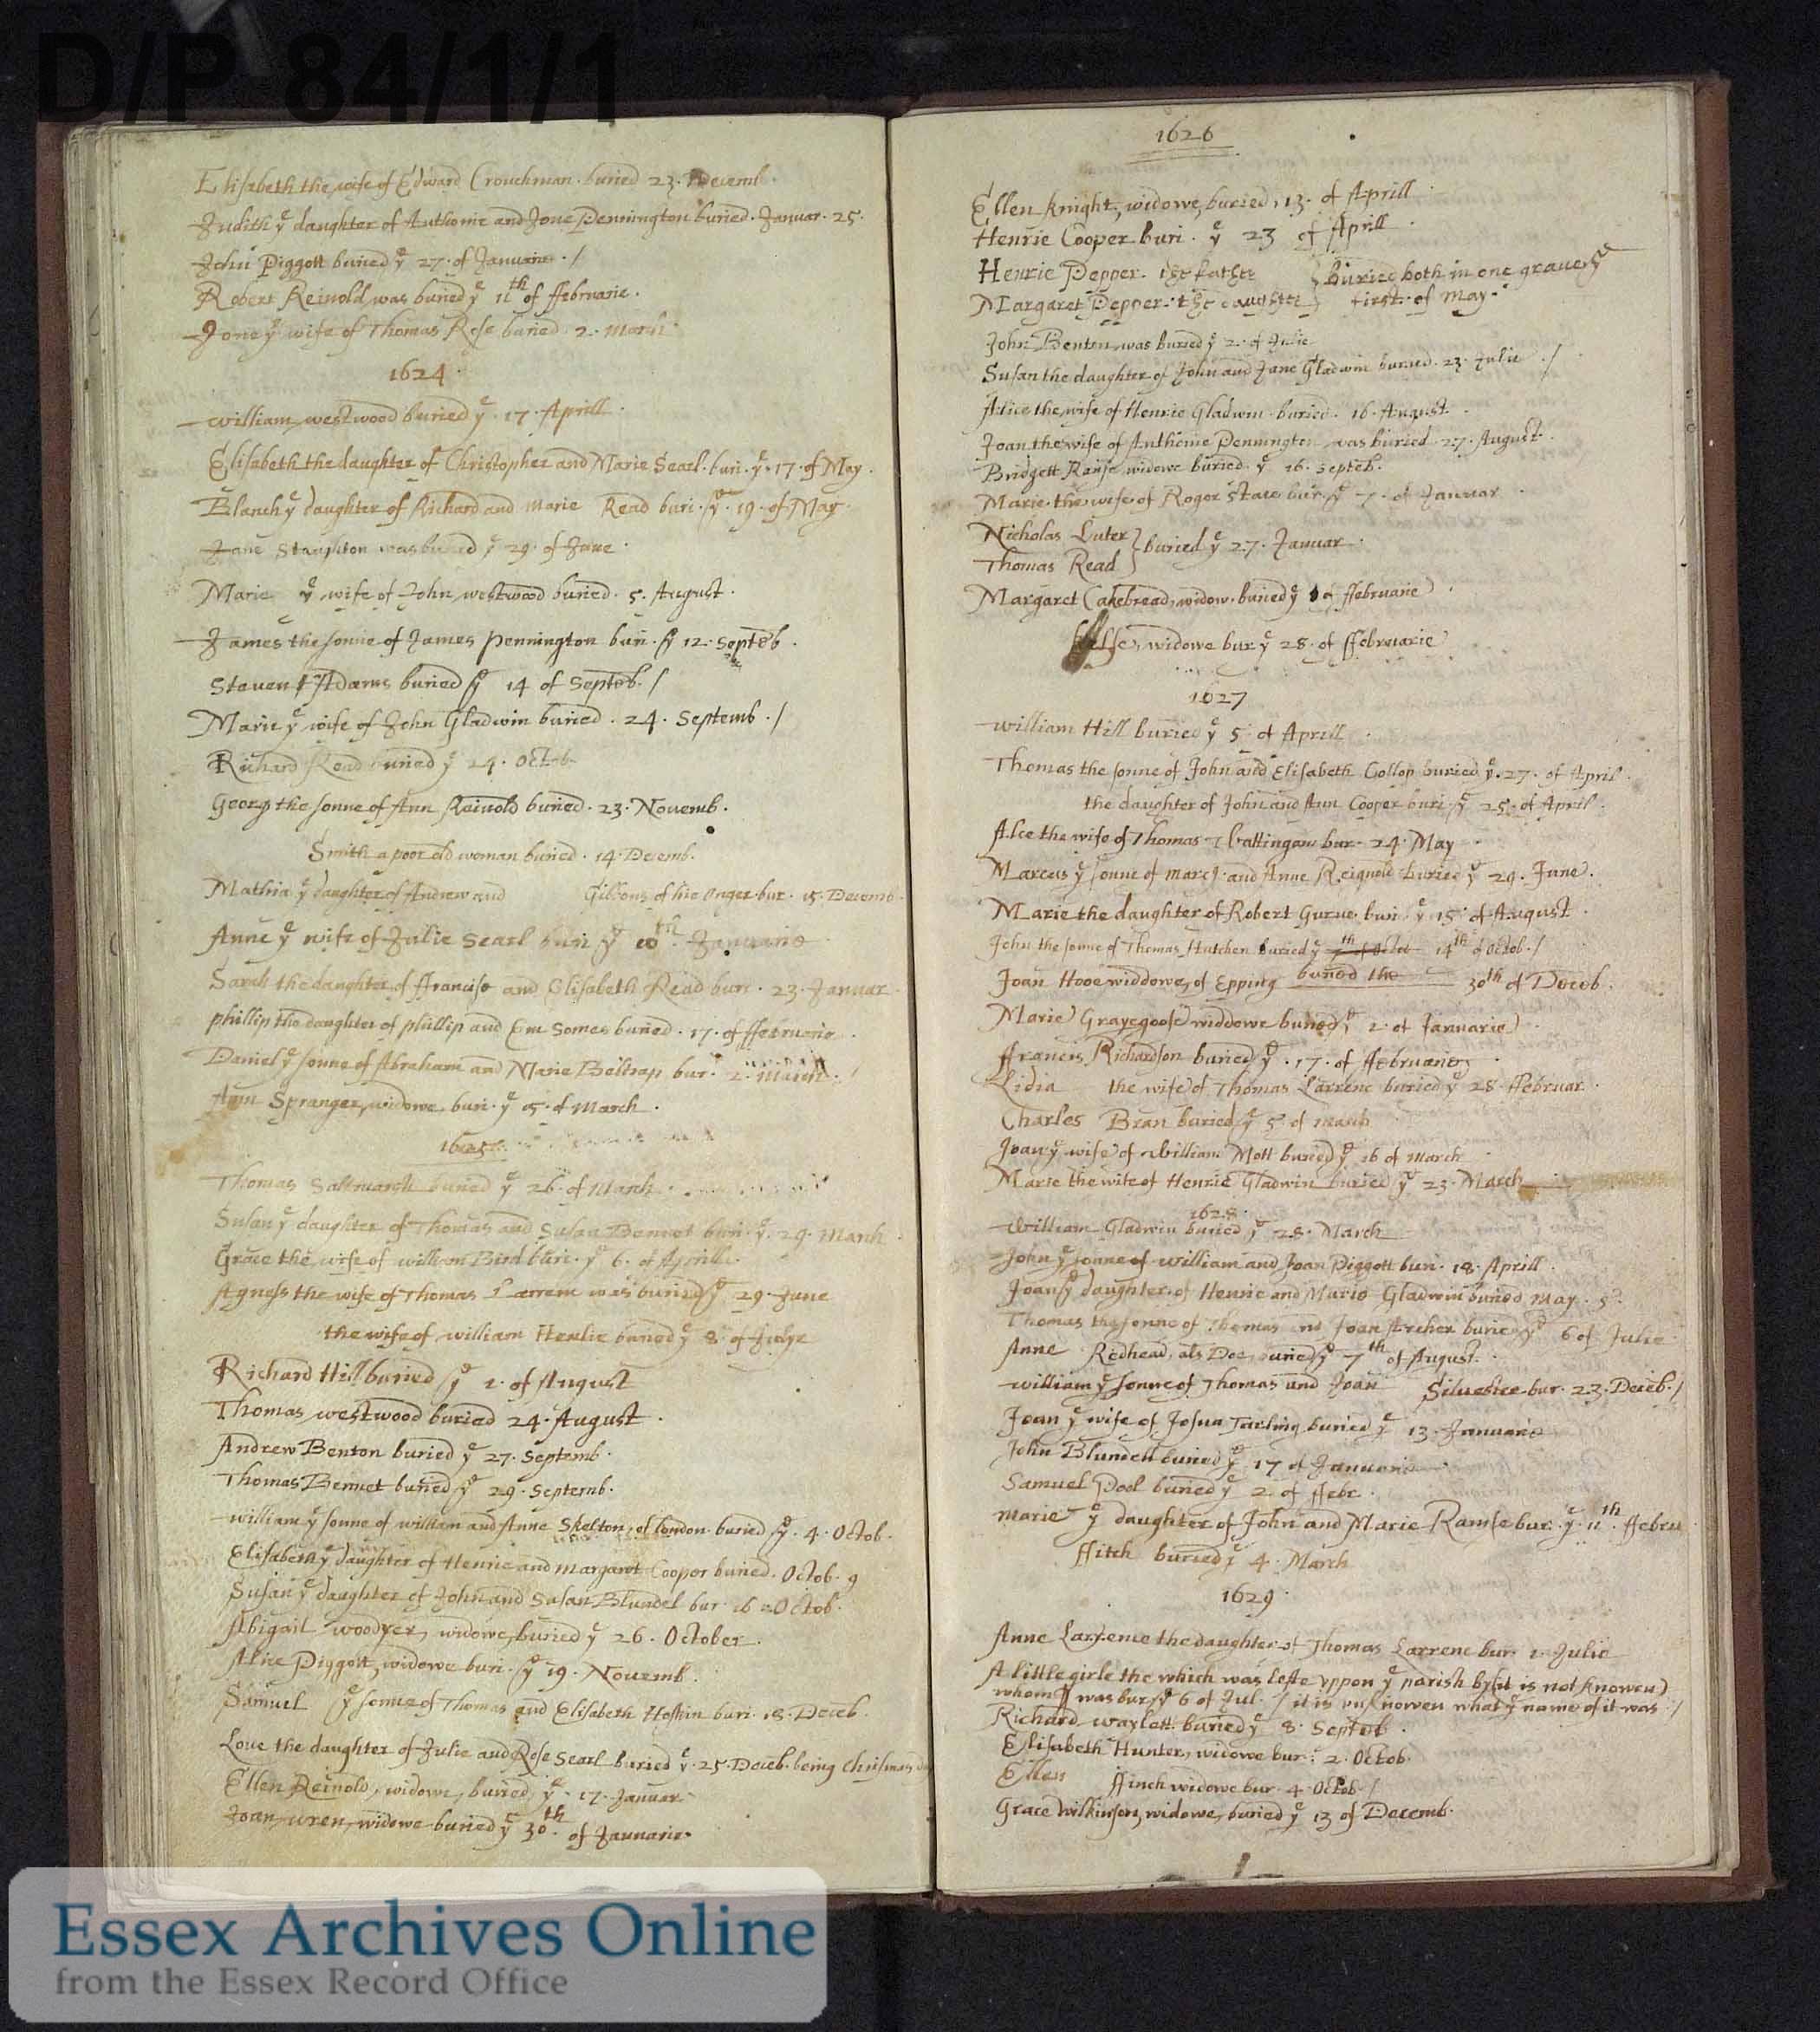 D/P 84/1/1
Elisabeth the wife of Edward Crouchman. buried 23. Decemb.
Judith yᵉ daughter of Anthonie and Jone Pennington buried. Januar. 25.
John Piggott buried yᵉ 27. of Januarie. /
Robert Reinold was buried yᵉ 11th of ffebruarie.
Jone yᵉ wife of Thomas Rose buried. 2. March.
1624.
William westwood buried yᵉ. 17. Aprill.
Elisabeth the daughter of Christopher and Marie Searl. buri. yᵉ. 17. of May.
Blanch yᵉ daughter of Richard and Marie Read buri. yᵉ. 19. of May.
Jane Staughton was buried yᵉ 29. of June.
Marie yᵉ wife of John westwood buried. 5. August.
James the sonne of James Pennington buri. yᵉ 12. Septeb.
Steven Adams buried yᵉ 14 of Septeb. /
Marie yᵉ wife of John Gladwin buried. 24. Septemb. /
Richard Read buried yᵉ 24. Octob.
Georg the sonne of Ann Reinold buried. 23. Novemb.
Smith a poor old woman buried. 14. Decemb.
Mathia yᵉ daughter of Andrew and Gibbons of hie Onger. bur. 15. Decemb.
Anne yᵉ wife of Julie Searl buri yᵉ 10th. Januarie
Sarah the daughter of ffrancise and Elisabeth Read buri. 23. Januar.
Phillip the daughter of Phillip and Em Somes buried. 17. of ffebruarie.
Daniel yᵉ sonne of Abraham and Marie Beltrap bur. 2. March. /
Ann Spranger, widowe buri. yᵉ 5. of March.
1625.
Thomas Saltmarsh buried yᵉ 26. of March.
Susan yᵉ daughter of Thomas and Susan Bennet buri. yᵉ. 29. March.
Grace the wife of william Bird buri. yᵉ 6. of Aprill.
Agness the wife of Thomas Larrenc was buried yᵉ 29. June
the wife of william Henlie buried yᵉ 8. of Julye
Richard Hill buried yᵉ 2. of August
Thomas westwood buried 24. August.
Andrew Benton buried yᵉ 27. Septemb.
Thomas Bennet buried yᵉ 29. Septemb.
william yᵉ sonne of william and Anne Skelton, of london. buried yᵉ. 4. Octob.
Elisabeth yᵉ daughter of Henrie and Margaret Cooper buried. Octob. 9
Susan yᵉ daughter of John and Susan Blundel bur. 16 Octob.
Abigail woodyer, widowe, buried yᵉ 26. October.
Alice Piggott, widowe buri. yᵉ 19. Novemb.
Samuel yᵉ sonne of Thomas and Elisabeth Hoskin buri. 18. Deceb.
Love the daughter of Julie and Rose Searl buried yᵉ. 25. Deceb. being Chrismas
Ellen Reinold, widowe, buried, yᵉ. 17. Januar.
Joan wren, widowe buried yᵉ 30.th of Januarie.
1626
Ellen Knight, widowe, buried, 13. of Aprill.
Henrie Cooper buri. yᵉ 23 of Aprill.
Henrie Pepper. the father } buried both in one grave yᵉ
Margaret Pepper. the daughter } first. of May.
John Benton was buried yᵉ 2. of Julie
Susan the daughter of John and Jane Gladwin buried. 23. Julie. /
Alice the wife of Henrie Gladwin. buried. 16. August.
Joan the wife of Anthonie Pennington was buried. 27. August.
Bridgett Ranse, widowe buried. yᵉ 16. Septeb.
Marie. the wife of Roger Stace bur. yᵉ 7. of Januar.
Nicholas Luter }
Thomas Read } buried yᵉ 27. Januar.
Margaret Cakebread, widow. buried yᵉ of ffebruarie.
widowe bur. yᵉ 28. of ffebruarie
1627
William Hill buried yᵉ 5. of Aprill.
Thomas the sonne of John and Elisabeth Collop buried yᵉ. 27. of April.
the daughter of John and Ann Cooper buri. yᵉ 25. of April.
Alce the wife of Thomas Wattingam bur. 24. May
Marcus yᵉ sonne of Marcs. and Anne Reignold buried yᵉ 29. June.
Marie the daughter of Robert Gurne. buri. yᵉ 15. of August.
John the sonne of Thomas Hutchen buried yᵉ 14th of Octob. /
Joan Hooe widdowe, of Epping buried the 30th of Deceb.
Marie Graygoose widdowe buried yᵉ 2. of Januarie.
ffrancis Richardson buried yᵉ. 17. of ffebruarie
Lidia the wife of Thomas Larrenc buried yᵉ 28. ffebruar.
Charles Bran buried yᵉ 5. of March
Joan yᵉ wife of William Mott buried yᵉ 16 of March
Marie the wife of Henrie Gladwin buried yᵉ 23. March
1628.
William Gladwin buried yᵉ 28. March
John yᵉ sonne of william and Joan Piggott buri. 18. Aprill.
Joan yᵉ daughter. of Henrie and Marie Gladwin buried May. 5.
Thomas the sonne of Thomas and Joan Archer buried yᵉ 6 of Julie
Anne Redhead, als Doe, buried yᵉ 7th of August.
william yᵉ sonne of Thomas and Joan Silvester bur. 23. Deceb. /
Joan yᵉ wife of Josua Tarling buried yᵉ 13. Januarie
John Blundell buried yᵉ 17 of Januarie
Samuel Pool buried yᵉ 2. of ffebr.
Marie yᵉ daughter of John and Marie Ramse bur. yᵉ. 11th. ffebru
ffitch buried yᵉ 4. March
1629.
Anne Larrence the daughter of Thomas Larrenc bur. 2. Julie
A little girle the which was lefte uppon yᵉ parish by (it is not knowen)
whom was bur. yᵉ 6 of Jul. / it is unknowen what yᵉ name of it was. /
Richard waylett. buried yᵉ 8. Septeb.
Elisabeth Hunter, widowe bur. 2. Octob.
Ellen ffinch widowe bur. 4. Octob. /
Grace Wilkinson, widowe, buried yᵉ 13 of Decemb.
Essex Archives Online
from the Essex Record Office